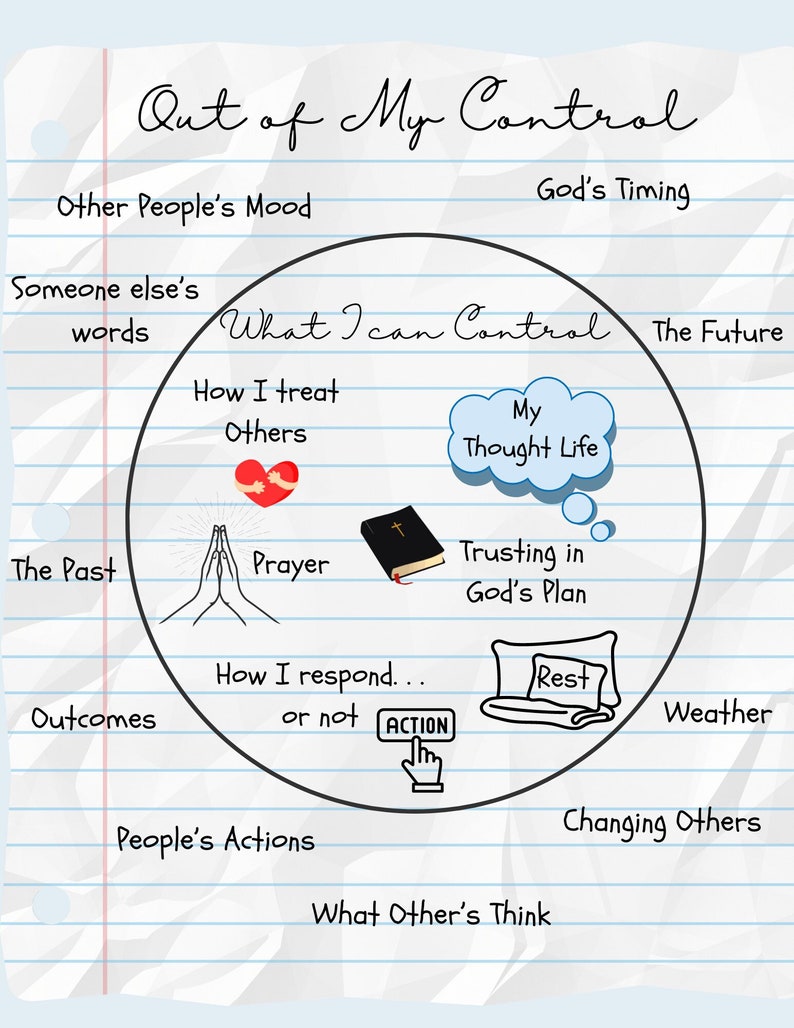 Out of My Control
God's Timing
Other People's Mood
Someone else's
words
What I can Control
The Future
How I treat
Others
My
Thought Life
The Past
Prayer
Trusting in
God's Plan
How I respond. . .
or not
ACTION
Rest
Outcomes
Weather
People's Actions
Changing Others
What Other's Think